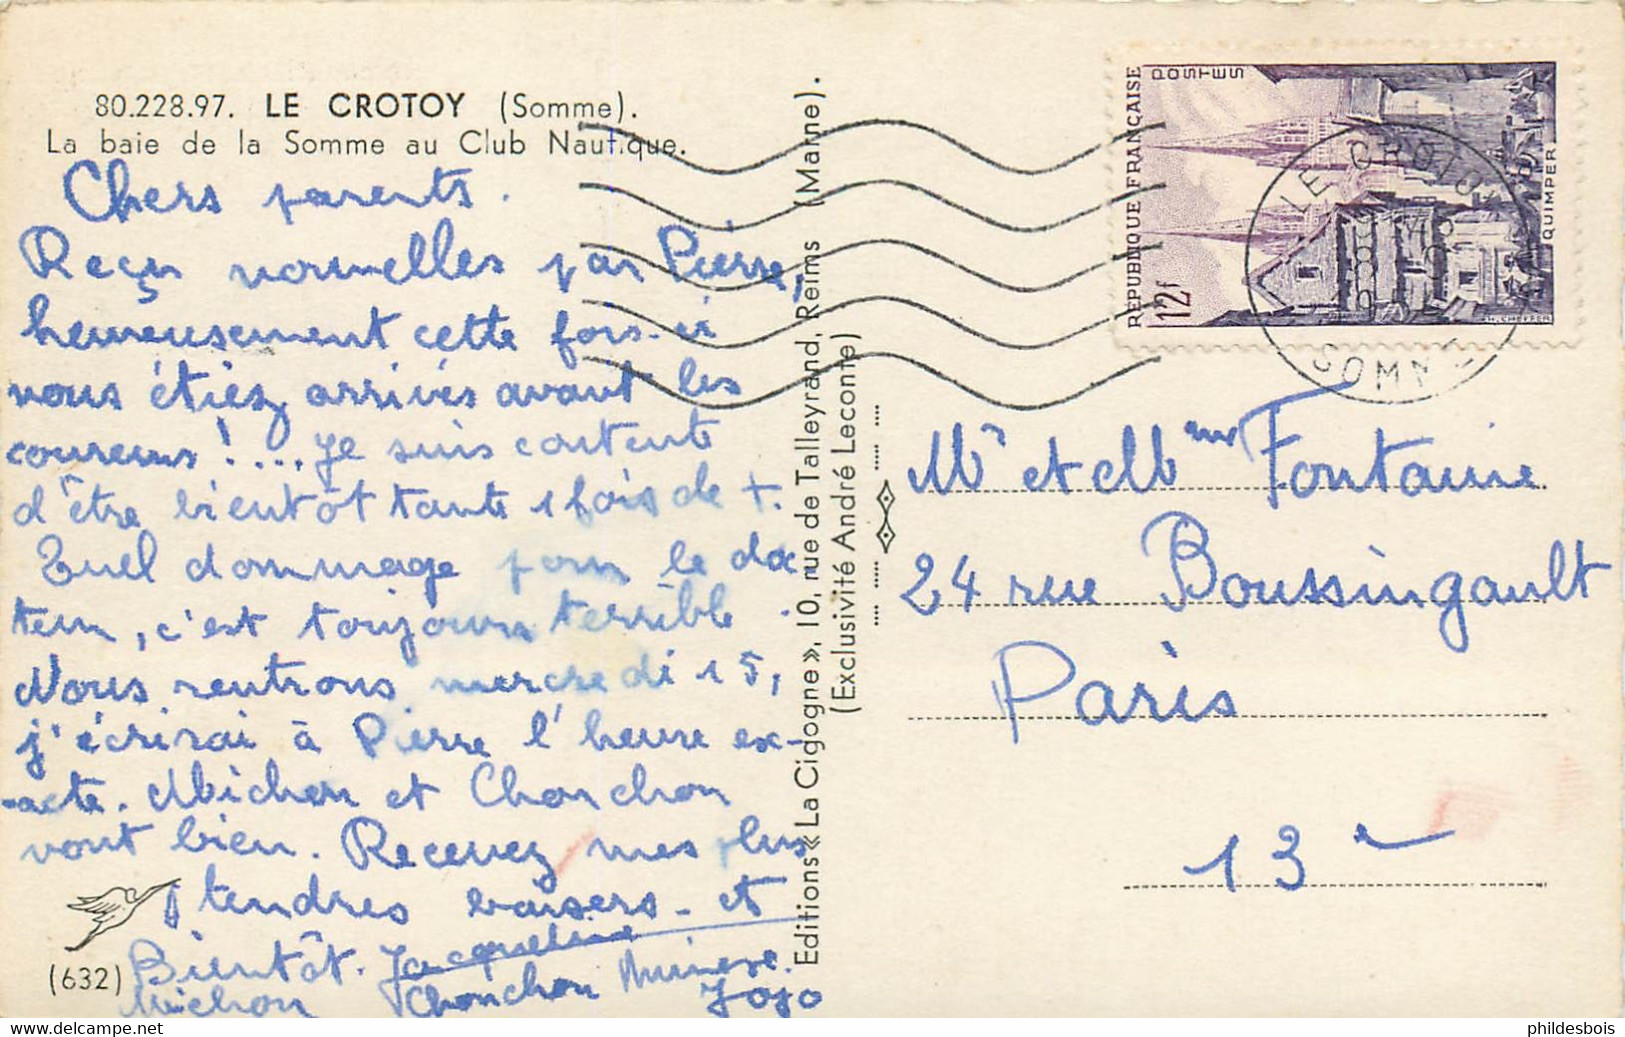 80.228.97. LE CROTOY (Somme).
La baie de la Somme au Club Nautique.
Chers parents.
Reçu nouvelles par Pierre,
heureusement cette fois-ci
vous étiez arrivés avant les
coureurs !... Je suis contente
d'être bientôt tante 1 fois de +.
Quel dommage pour le doc
teur, c'est toujours terrible.
Nous rentrons mercredi 15,
j'écrirai à Pierre l'heure ex-
-acte. Michou et Chouchou
vont bien. Recevez mes plus
tendres baisers - et
Bientôt. Jacqueline
Michou Chouchou
Jojo
(632)
Editions « La Cigogne », 10, rue de Talleyrand, Reims (Marne).
(Exclusivité André Leconte)
REPUBLIQUE FRANÇAISE
POSTES
12f
QUIMPER
LE CROTOY
SOMME
Mr et Mme Fontaine
24 rue Boussingault
Paris
13e
phildesbois